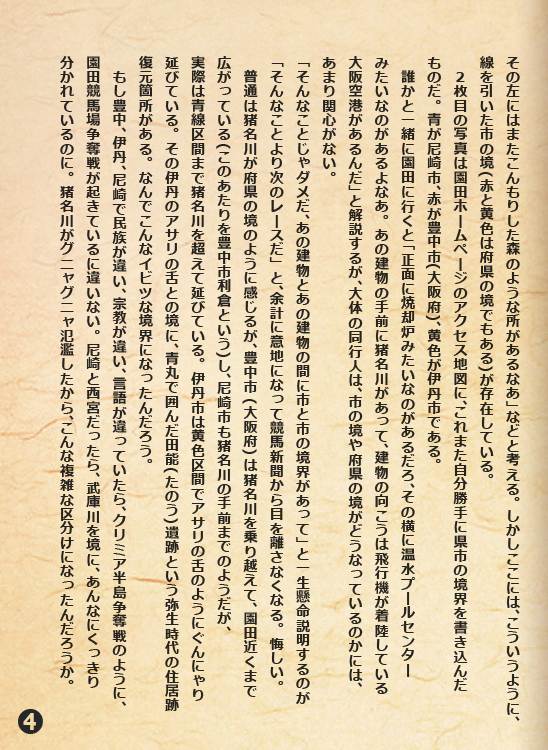 その左にはまたこんもりした森のような所があるなあ」などと考える。しかしここには、こういうように、
線を引いた市の境(赤と黄色は府県の境でもある)が存在している。
　２枚目の写真は園田ホームページのアクセス地図に、これまた自分勝手に県市の境界を書き込んだ
ものだ。青が尼崎市、赤が豊中市(大阪府)、黄色が伊丹市である。
　誰かと一緒に園田に行くと「正面に焼却炉みたいなのがあるだろ、その横に温水プールセンター
みたいなのがあるよなあ。あの建物の手前に猪名川があって、建物の向こうは飛行機が着陸している
大阪空港があるんだ」と解説するが、大体の同行人は、市の境や府県の境がどうなっているのかには、
あまり関心がない。
「そんなことじゃダメだ、あの建物とあの建物の間に市と市の境界があって」と一生懸命説明するのが
「そんなことより次のレースだ」と、余計に意地になって競馬新聞から目を離さなくなる。悔しい。
　普通は猪名川が府県の境のように感じるが、豊中市(大阪府)は猪名川を乗り越えて、園田近くまで
広がっている(このあたりを豊中市利倉という)し、尼崎市も猪名川の手前までのようだが、
実際は青線区間まで猪名川を超えて延びている。伊丹市は黄色区間でアサリの舌のようにぐんにゃり
延びている。その伊丹のアサリの舌との境に、青丸で囲んだ田能(たのう)遺跡という弥生時代の住居跡
復元箇所がある。なんでこんなイビツな境界になったんだろう。
　もし豊中、伊丹、尼崎で民族が違い、宗教が違い、言語が違っていたら、クリミア半島争奪戦のように、
園田競馬場争奪戦が起きているに違いない。尼崎と西宮だったら、武庫川を境に、あんなにくっきり
分かれているのに。猪名川がグニャグニャ氾濫したから、こんな複雑な区分けになったんだろうか。
4